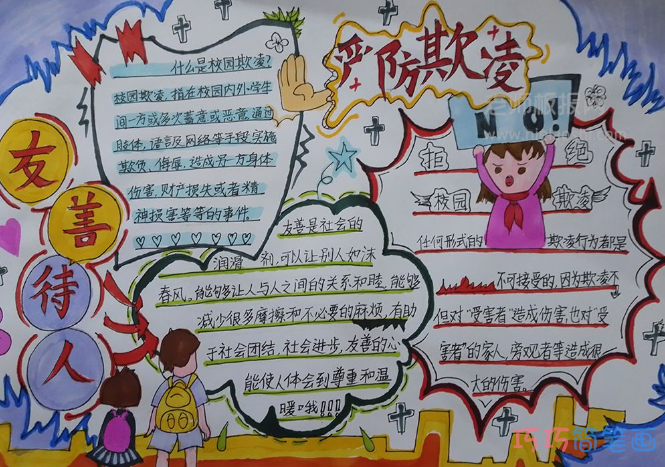 严防欺凌
什么是校园欺凌?
校园欺凌,指在校园内外学生
间一方或多次蓄意或恶意通过
肢体、语言及网络等手段实施
欺负、侮辱,造成另一方身体
伤害,财产损失或者精
神损害等等的事件
友善待人
友善是社会的
润滑剂,可以让别人如沐
春风。能够让人与人之间的关系和睦,能够
减少很多摩擦和不必要的麻烦,有助
于社会团结,社会进步,友善的心
能使人体会到尊重和温
暖哦!!!
No!
拒绝
校园欺凌
任何形式的欺凌行为都是
不可接受的,因为欺凌不
但对"受害者"造成伤害,也对"受
害者"的家人,旁观者等造成很
大的伤害。
巧巧简笔画